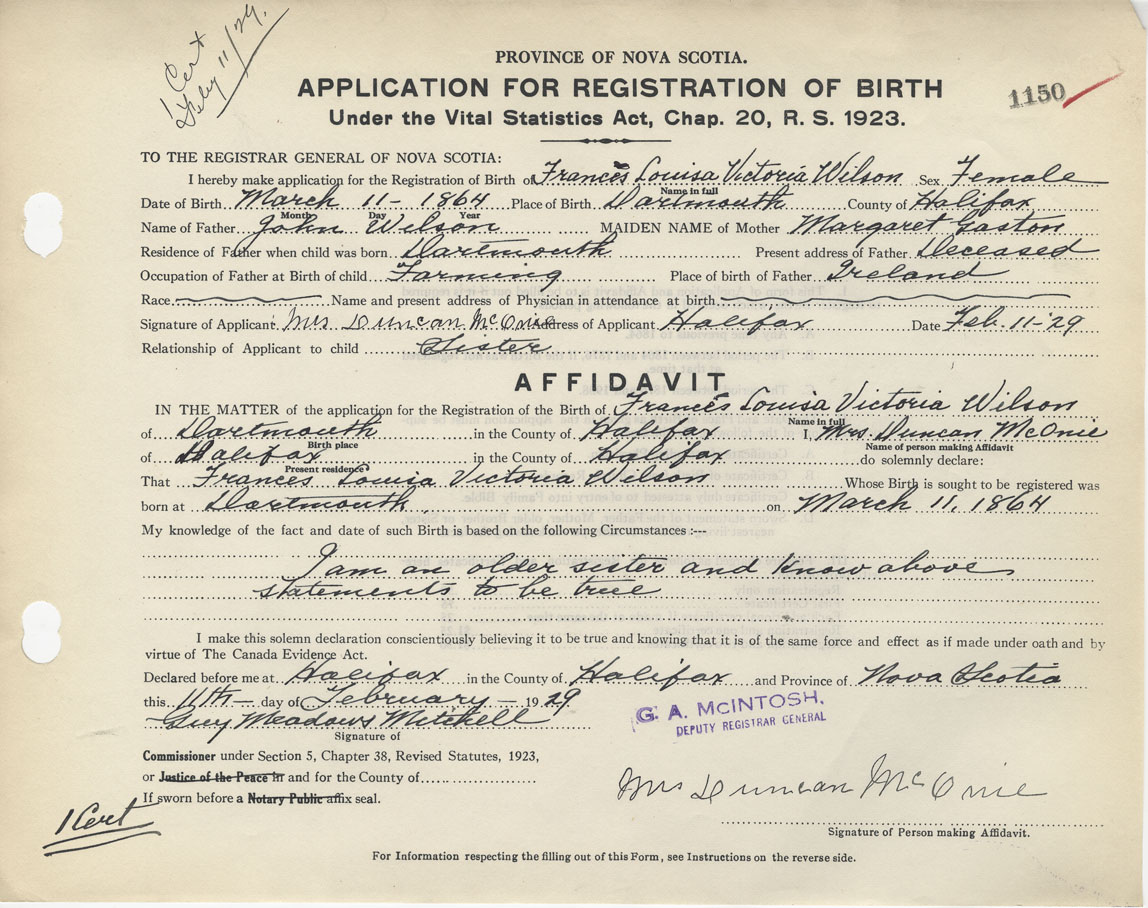 1 Cert
Feby 11/29.
PROVINCE OF NOVA SCOTIA.
APPLICATION FOR REGISTRATION OF BIRTH
1150
Under the Vital Statistics Act, Chap. 20, R. S. 1923.
TO THE REGISTRAR GENERAL OF NOVA SCOTIA:
I hereby make application for the Registration of Birth of Frances Louisa Victoria Wilson Sex Female
Name in full
Date of Birth March 11 - 1864 Place of Birth Dartmouth County of Halifax
Month Day Year
Name of Father John Wilson MAIDEN NAME of Mother Margaret Gaston
Residence of Father when child was born Dartmouth Present address of Father Deceased
Occupation of Father at Birth of child Farming Place of birth of Father Ireland
Race Name and present address of Physician in attendance at birth
Signature of Applicant Mrs Duncan McOnie Address of Applicant Halifax Date Feb. 11-'29
Relationship of Applicant to child Sister
AFFIDAVIT
IN THE MATTER of the application for the Registration of the Birth of Frances Louisa Victoria Wilson
Name in full
of Dartmouth in the County of Halifax I, Mrs. Duncan McOnie
Birth place Name of person making Affidavit
of Halifax in the County of Halifax do solemnly declare:
Present residence
That Frances Louisa Victoria Wilson Whose Birth is sought to be registered was
born at Dartmouth on March 11, 1864
My knowledge of the fact and date of such Birth is based on the following Circumstances :---
I am an older sister and know above
statements to be true
I make this solemn declaration conscientiously believing it to be true and knowing that it is of the same force and effect as if made under oath and by
virtue of The Canada Evidence Act.
Declared before me at Halifax in the County of Halifax and Province of Nova Scotia
this 11th - day of February - 1929
Guy Meadows Mitchell
Signature of
G. A. McINTOSH,
DEPUTY REGISTRAR GENERAL
Commissioner under Section 5, Chapter 38, Revised Statutes, 1923,
or Justice of the Peace in and for the County of
If sworn before a Notary Public affix seal.
Mrs Duncan McOnie
Signature of Person making Affidavit.
1 Cert
For Information respecting the filling out of this Form, see Instructions on the reverse side.